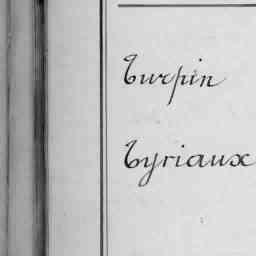 Turpin
Tyriaux